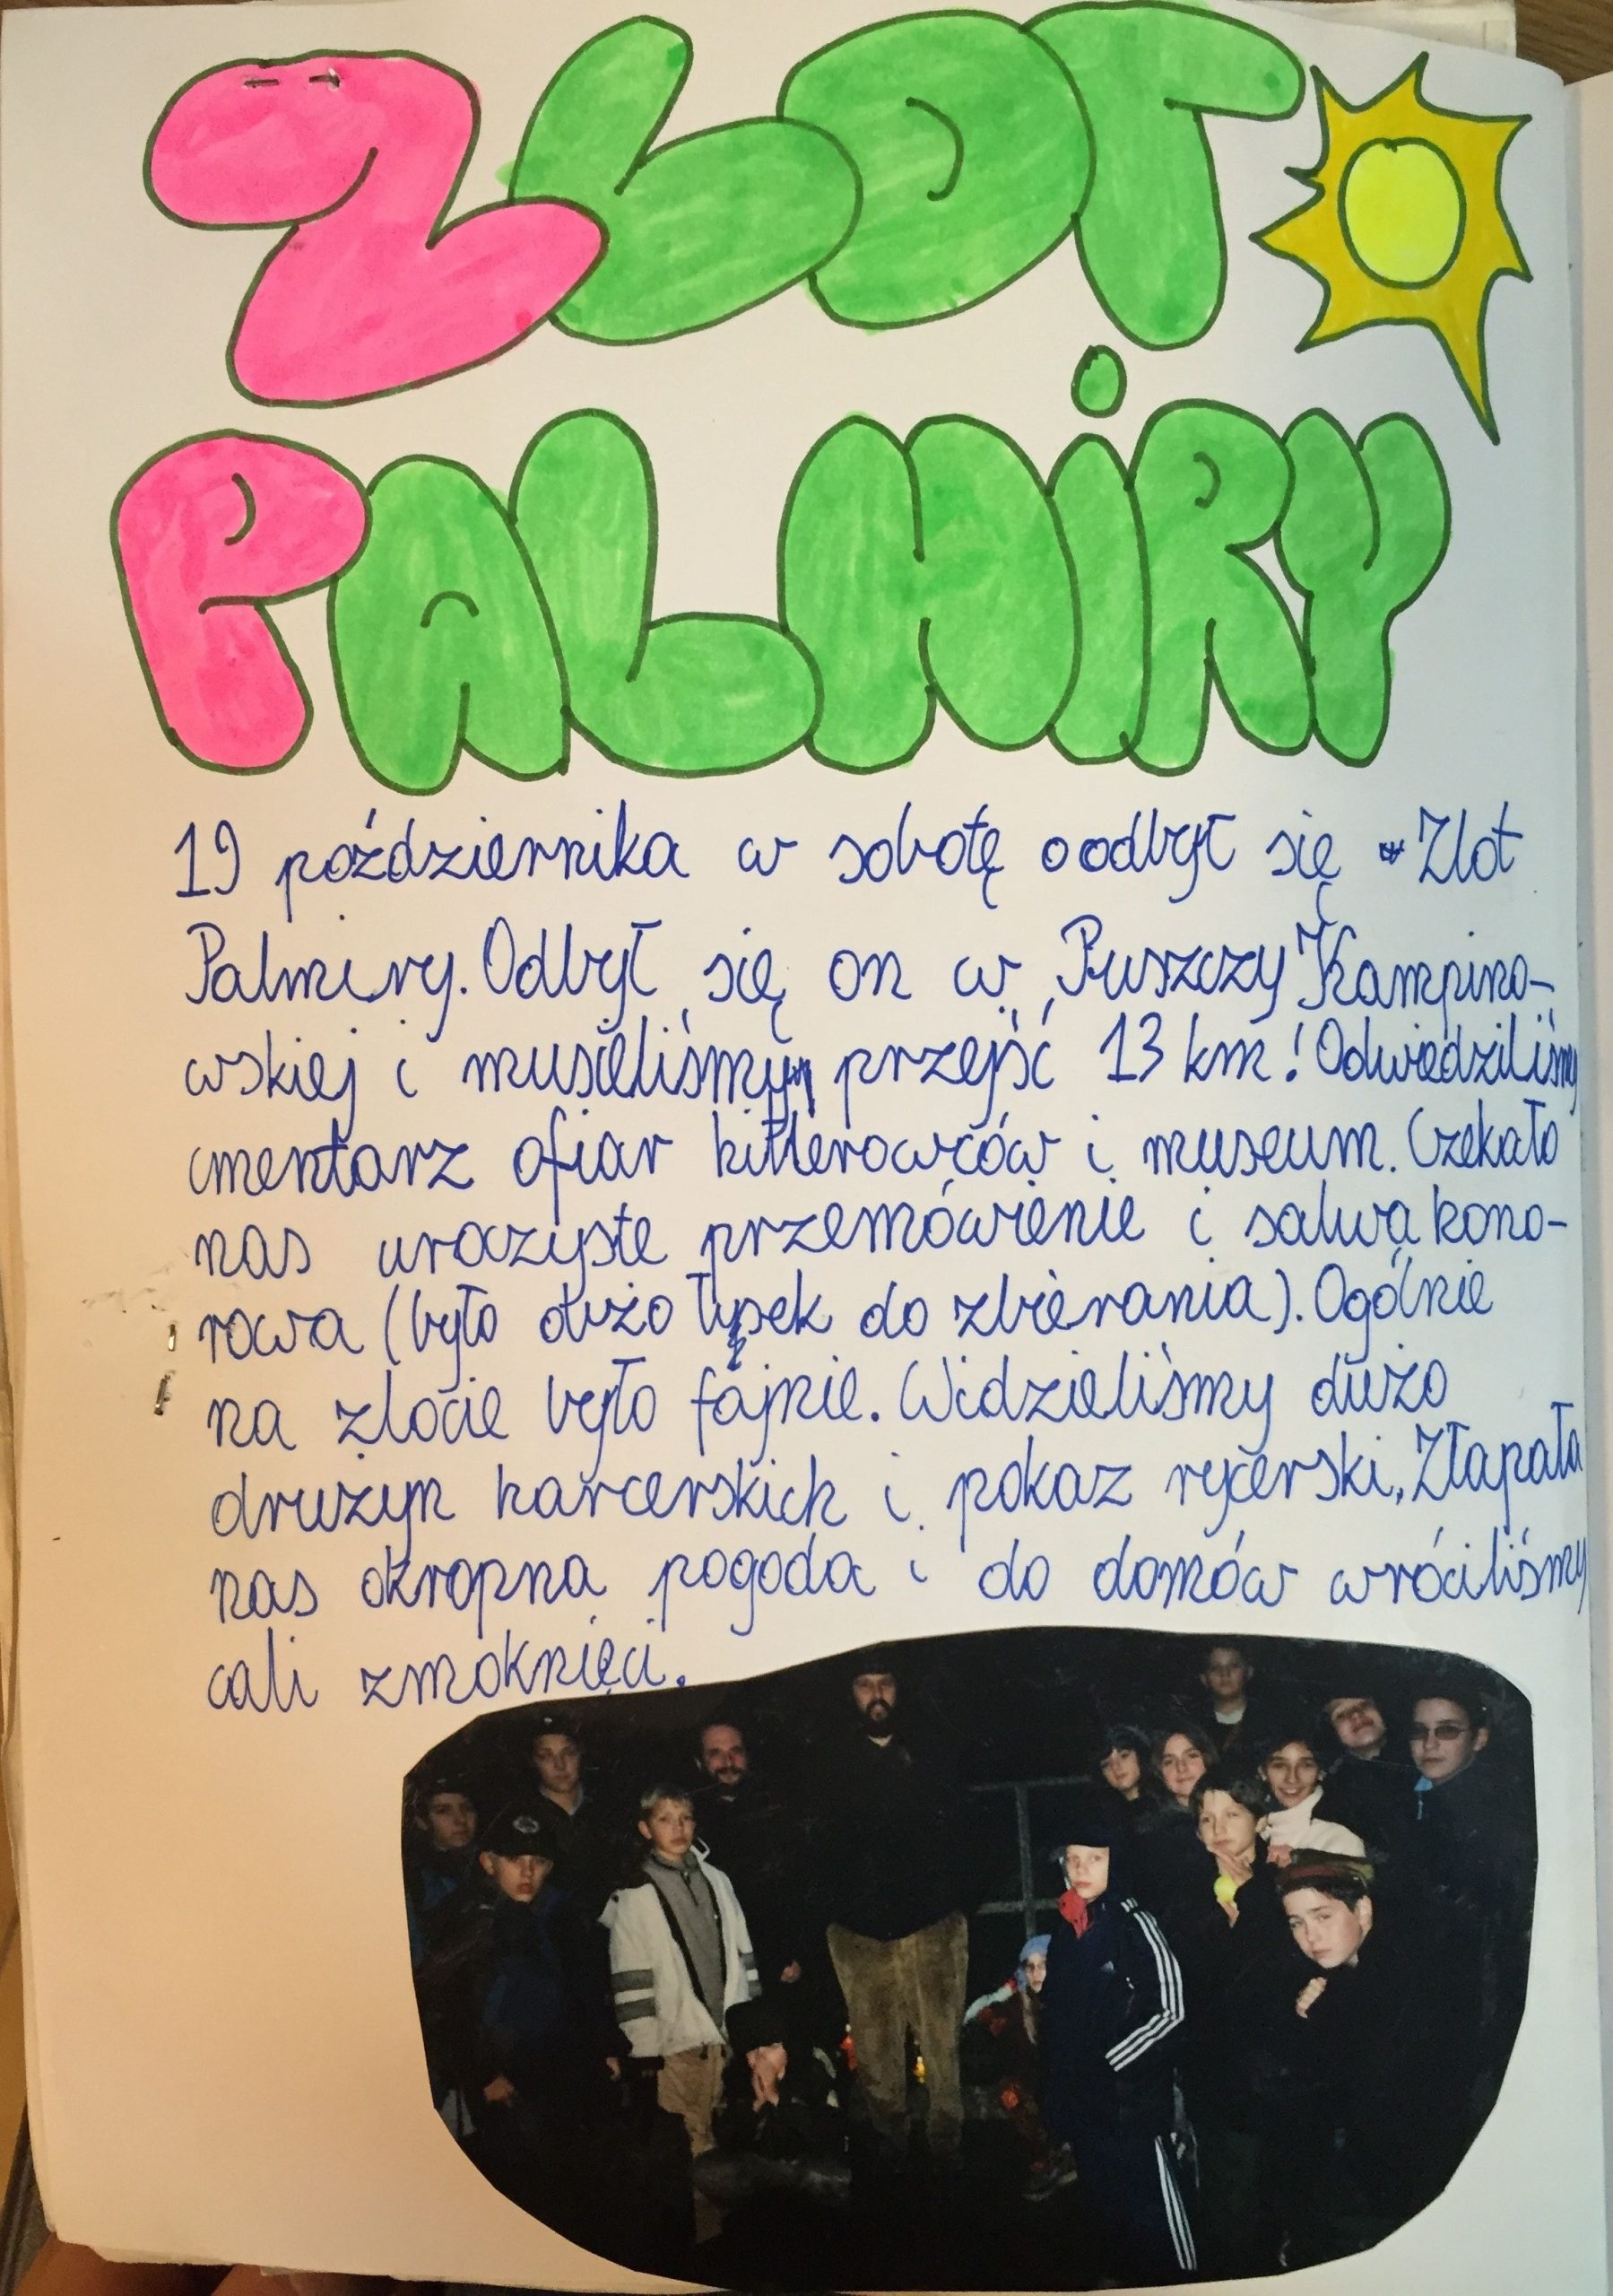 ZLOT
PALMiRY
19 października w sobotę odbył się Zlot
Palmiry. Odbył się on w Puszczy Kampino-
wskiej i musieliśmy przejść 13 km! Odwiedziliśmy
cmentarz ofiar hitlerowców i museum. Czekało
nas uroczyste przemówienie i salwa hono-
rowa (było dużo łusek do zbierania). Ogólnie
na zlocie było fajnie. Widzieliśmy dużo
drużyn harcerskich i pokaz rycerski. Złapała
nas okropna pogoda i do domów wróciliśmy
cali zmoknięci.